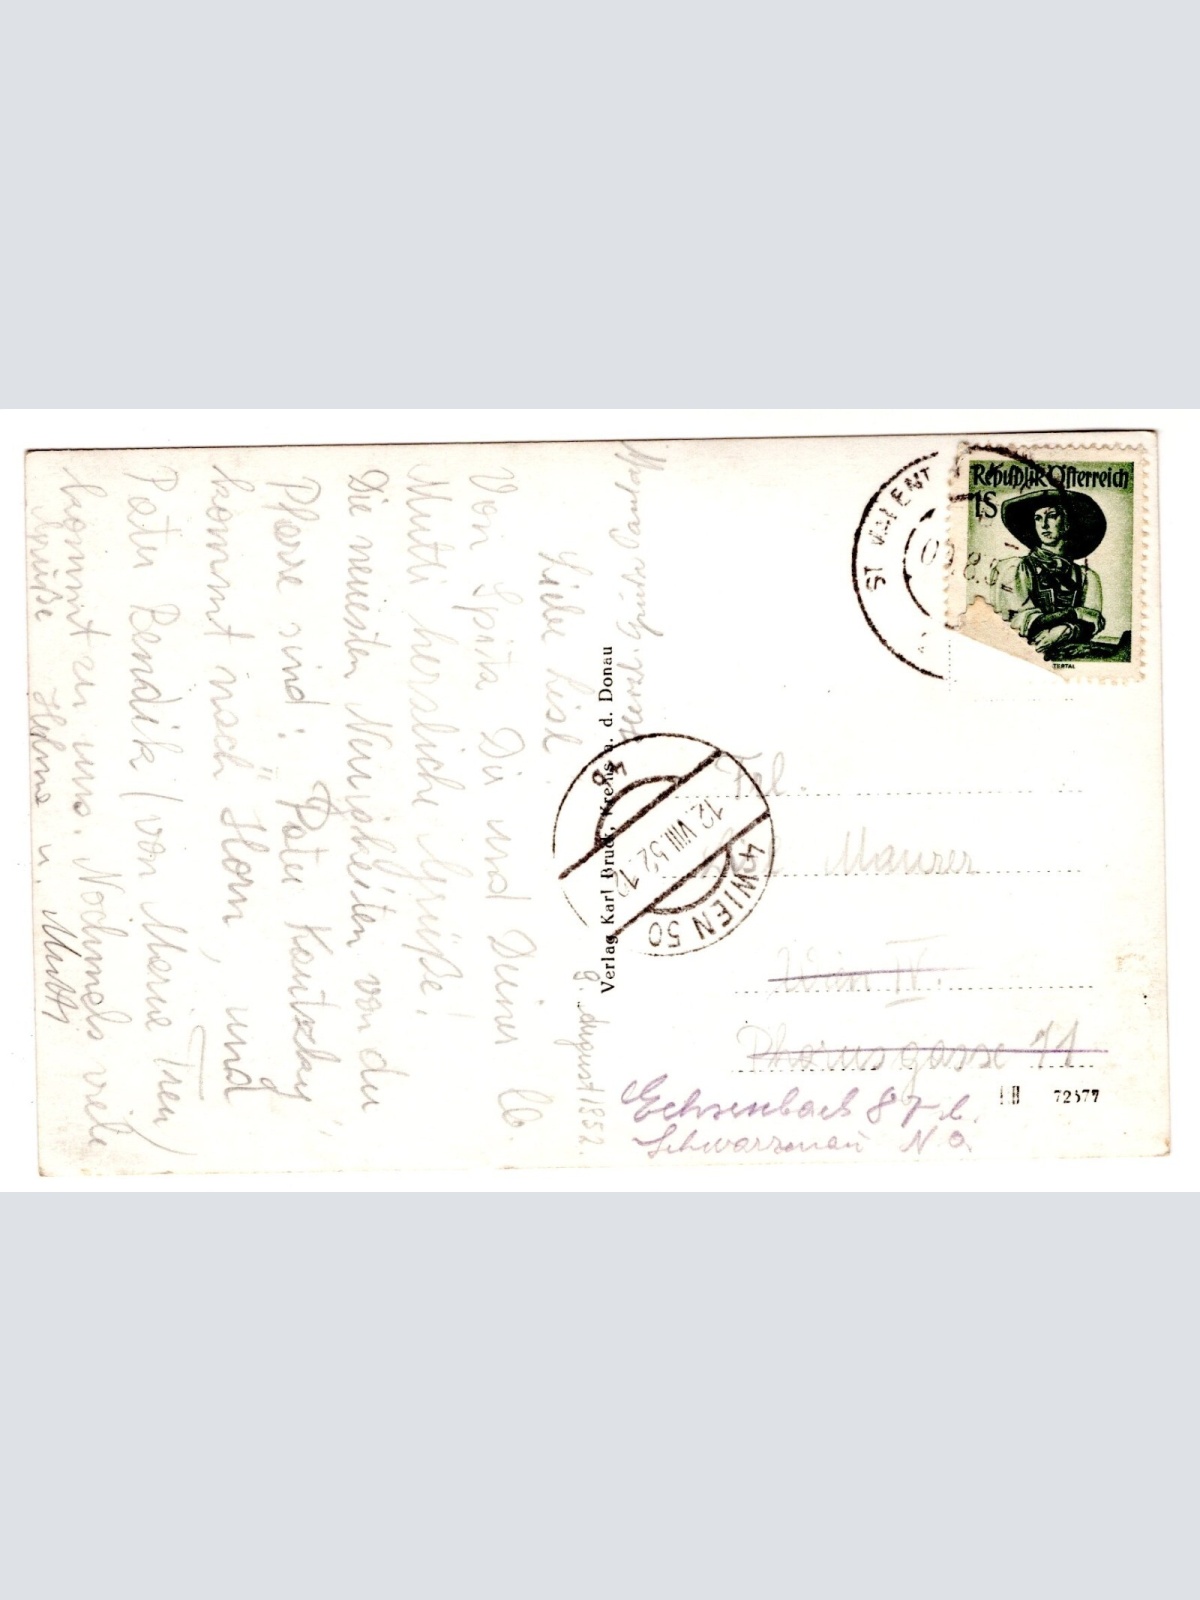 9. August 1952.
Liebe Lisl
Von Spitz Dir und Deiner lb.
Mutti herzliche Grüße!
Die neuesten Neuigkeiten von der
Pfarre sind: "Pater Kautzky"
kommt nach Horn, und
Pater Bendik (von Maria Treu)
kommt zu uns. Nochmals viele
Grüße
Helma u. Mutti
Herzl. Grüße
Verlag Karl Bruck, Krems a. d. Donau
ST VALENT
Republik Österreich
1S
TIROL
12.VIII.52.12
4 WIEN 50
Frl.
Lisl Maurer
Wien IV.
11
Echsenbach 87
Schwarzenau N.Ö
72577